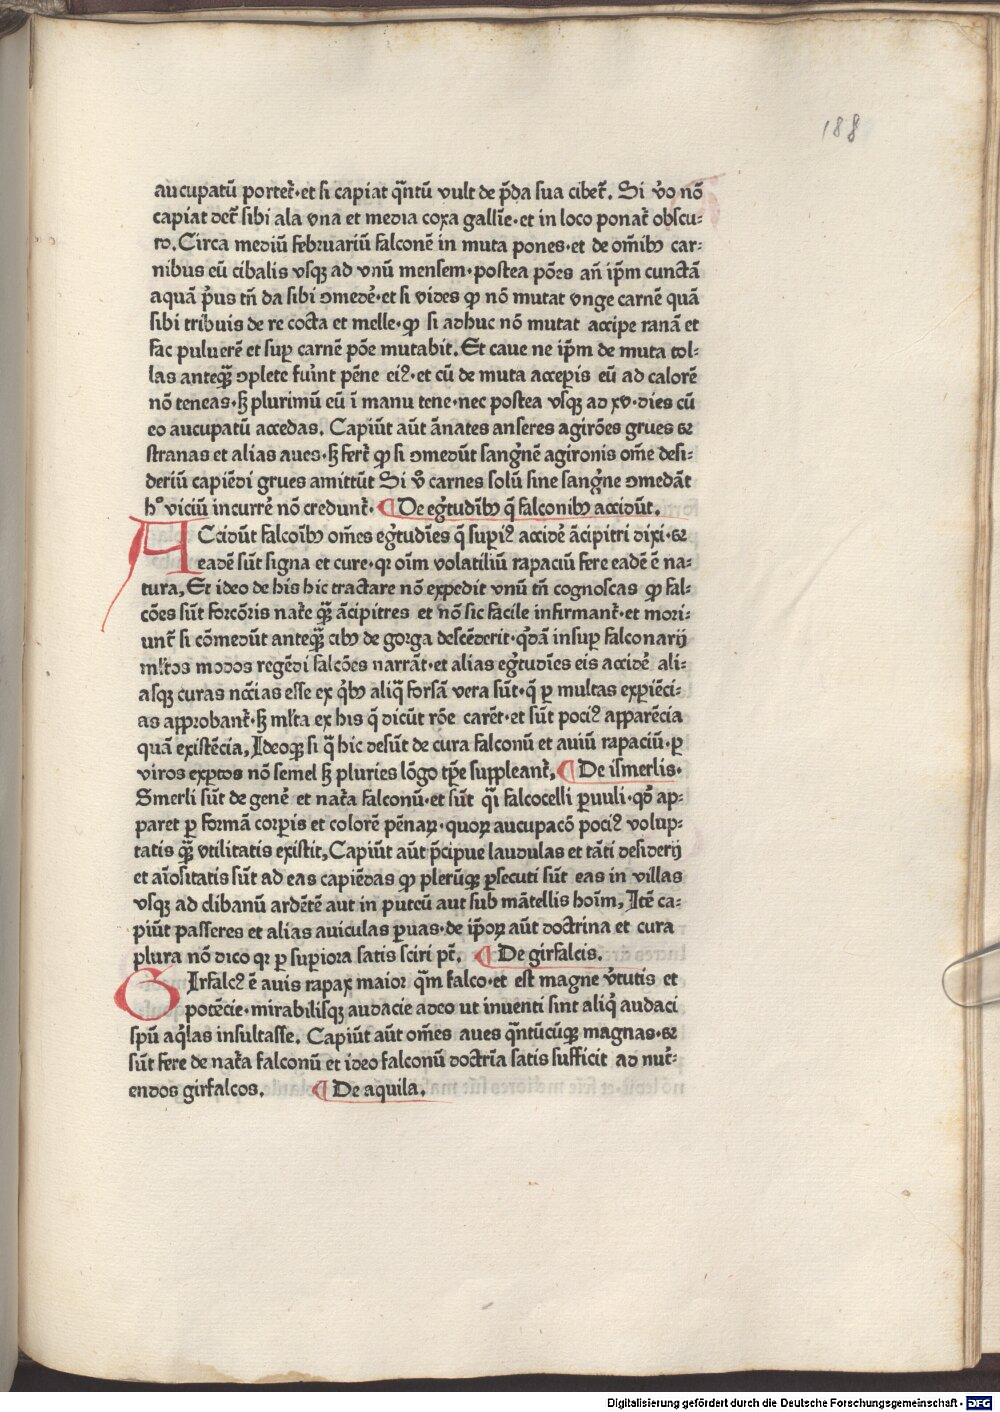 188
aucupatū portet᷑·et si capiat q̄ntū vult de p̄da sua cibet᷑. Si v̊o nō
capiat det᷑ sibi ala vna et media coxa gallīe·et in loco ponat᷑ obscu-
ro. Circa mediū februariū falconē in muta pones·et de om̄ibꝰ car-
nibus eū cibalis vsqꝫ ad vnū mensem·postea pōes añ ip̄m cunctā
aquā p̓us tn̄ da sibi ꝯmedē·et si vides ꝙ nō mutat vnge carnē quā
sibi tribuis de re cocta et melle·ꝙ si adhuc nō mutat accipe ranā et
fac puluerē et suꝑ carnē pōe mutabit. Et caue ne ip̄m de muta tol-
las anteqꝫ̄ ꝯplete fuīnt pēne eiꝰ·et cū de muta acceꝑis eū ad calorē
nō teneas·sꝫ plurimū eū ī manu tene·nec postea vsqꝫ ad xv·dies cū
eo aucupatū accedas. Capiūt aūt ānates anseres agirōes grues ⁊
stranas et alias aues·sꝫ fert᷑ ꝙ si ꝯmedūt sang̓nē agironis om̄e desi-
deriū capiēdi grues amittūt Si v̊o carnes solū sine sang̓ne ꝯmedāt
hº viciū incurrē nō credunt᷑· ¶ De eg̓tudībꝰ q̄ falconibꝰ accidūt.
ACcidūt falcoībꝰ om̄es eg̓tudīes q̄ suꝑiꝰ accidē ācipitri dixi·⁊
eadē sūt signa et cure·qꝛ oīm volatiliū rapaciū fere eadē ē na-
tura, Et ideo de his hic tractare nō expedit vnū tn̄ cognoscas ꝙ fal-
cōes sūt forcōris nat᷑e qꝫ̄ ācipitres et nō sic facile infirmant᷑·et mori-
unt᷑ si cōmedūt anteqꝫ̄ cibꝰ de gorga descēderit·q̇dā insuꝑ falconarij
ml̓tos modos regēdi falcōes narrāt·et alias eg̓tudīes eis accidē ali-
asqꝫ curas nccīas esse ex q̇bꝰ aliq̄ forsā vera sūt·q̄ ꝑ multas exꝑiēci-
as approbant᷑·sꝫ ml̓ta ex his q̄ dicūt rōe carēt·et sūt pociꝰ apparēcia
quā existēcia, Ideoqꝫ si q̄ hic desūt de cura falconū et auiū rapaciū·ꝑ
viros exꝑtos nō semel sꝫ pluries lōgo tꝑe suppleant᷑, ¶ De ismerlis·
Smerli sūt de genē et nat᷑a falconū·et sūt q̄i falcocelli ꝑuuli·qð ap-
paret ꝑ formā corꝑis et colorē pēnaꝝ·quoꝝ aucupacō pociꝰ volup-
tatis qꝫ̄ vtilitatis existit, Capiūt aūt p̄cipue laudulas et tāti desiderij
et aīositatis sūt ad eas capiēdas ꝙ plerūqꝫ ꝑsecuti sūt eas in villas
vsqꝫ ad clibanū ardētē aut in puteū aut sub mātellis hoīm, Itē ca-
piūt passeres et alias auiculas ꝑuas·de ip̄oꝝ aūt doctrina et cura
plura nō dico qꝛ ꝑ suꝑiora satis sciri pt̄. ¶ De girfalcis.
GIrfalcꝰ ē auis rapax maior q̄m falco·et est magne v̓tutis et
potēcie·mirabilisqꝫ audacie adeo ut inuenti sint aliq̇ audaci
spū aq̇las insultasse. Capiūt aūt om̄es aues q̄ntūcūqꝫ magnas·⁊
sūt fere de nat᷑a falconū et ideo falconū doctrīa satis sufficit ad nut᷑-
endos girfalcos. ¶ De aquila.
Digitalisierung gefördert durch die Deutsche Forschungsgemeinschaft - DFG